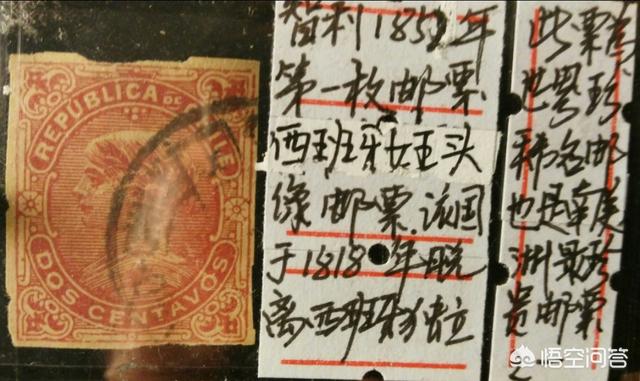 REPUBLICA DE CHILE
DOS CENTAVOS
智利1853年
第一枚邮票
西班牙女王头
像邮票.该国
于1818年脱
离西班牙独立
此票为
世界珍
稀名邮
也是南美
洲最珍
贵邮票
悟空问答